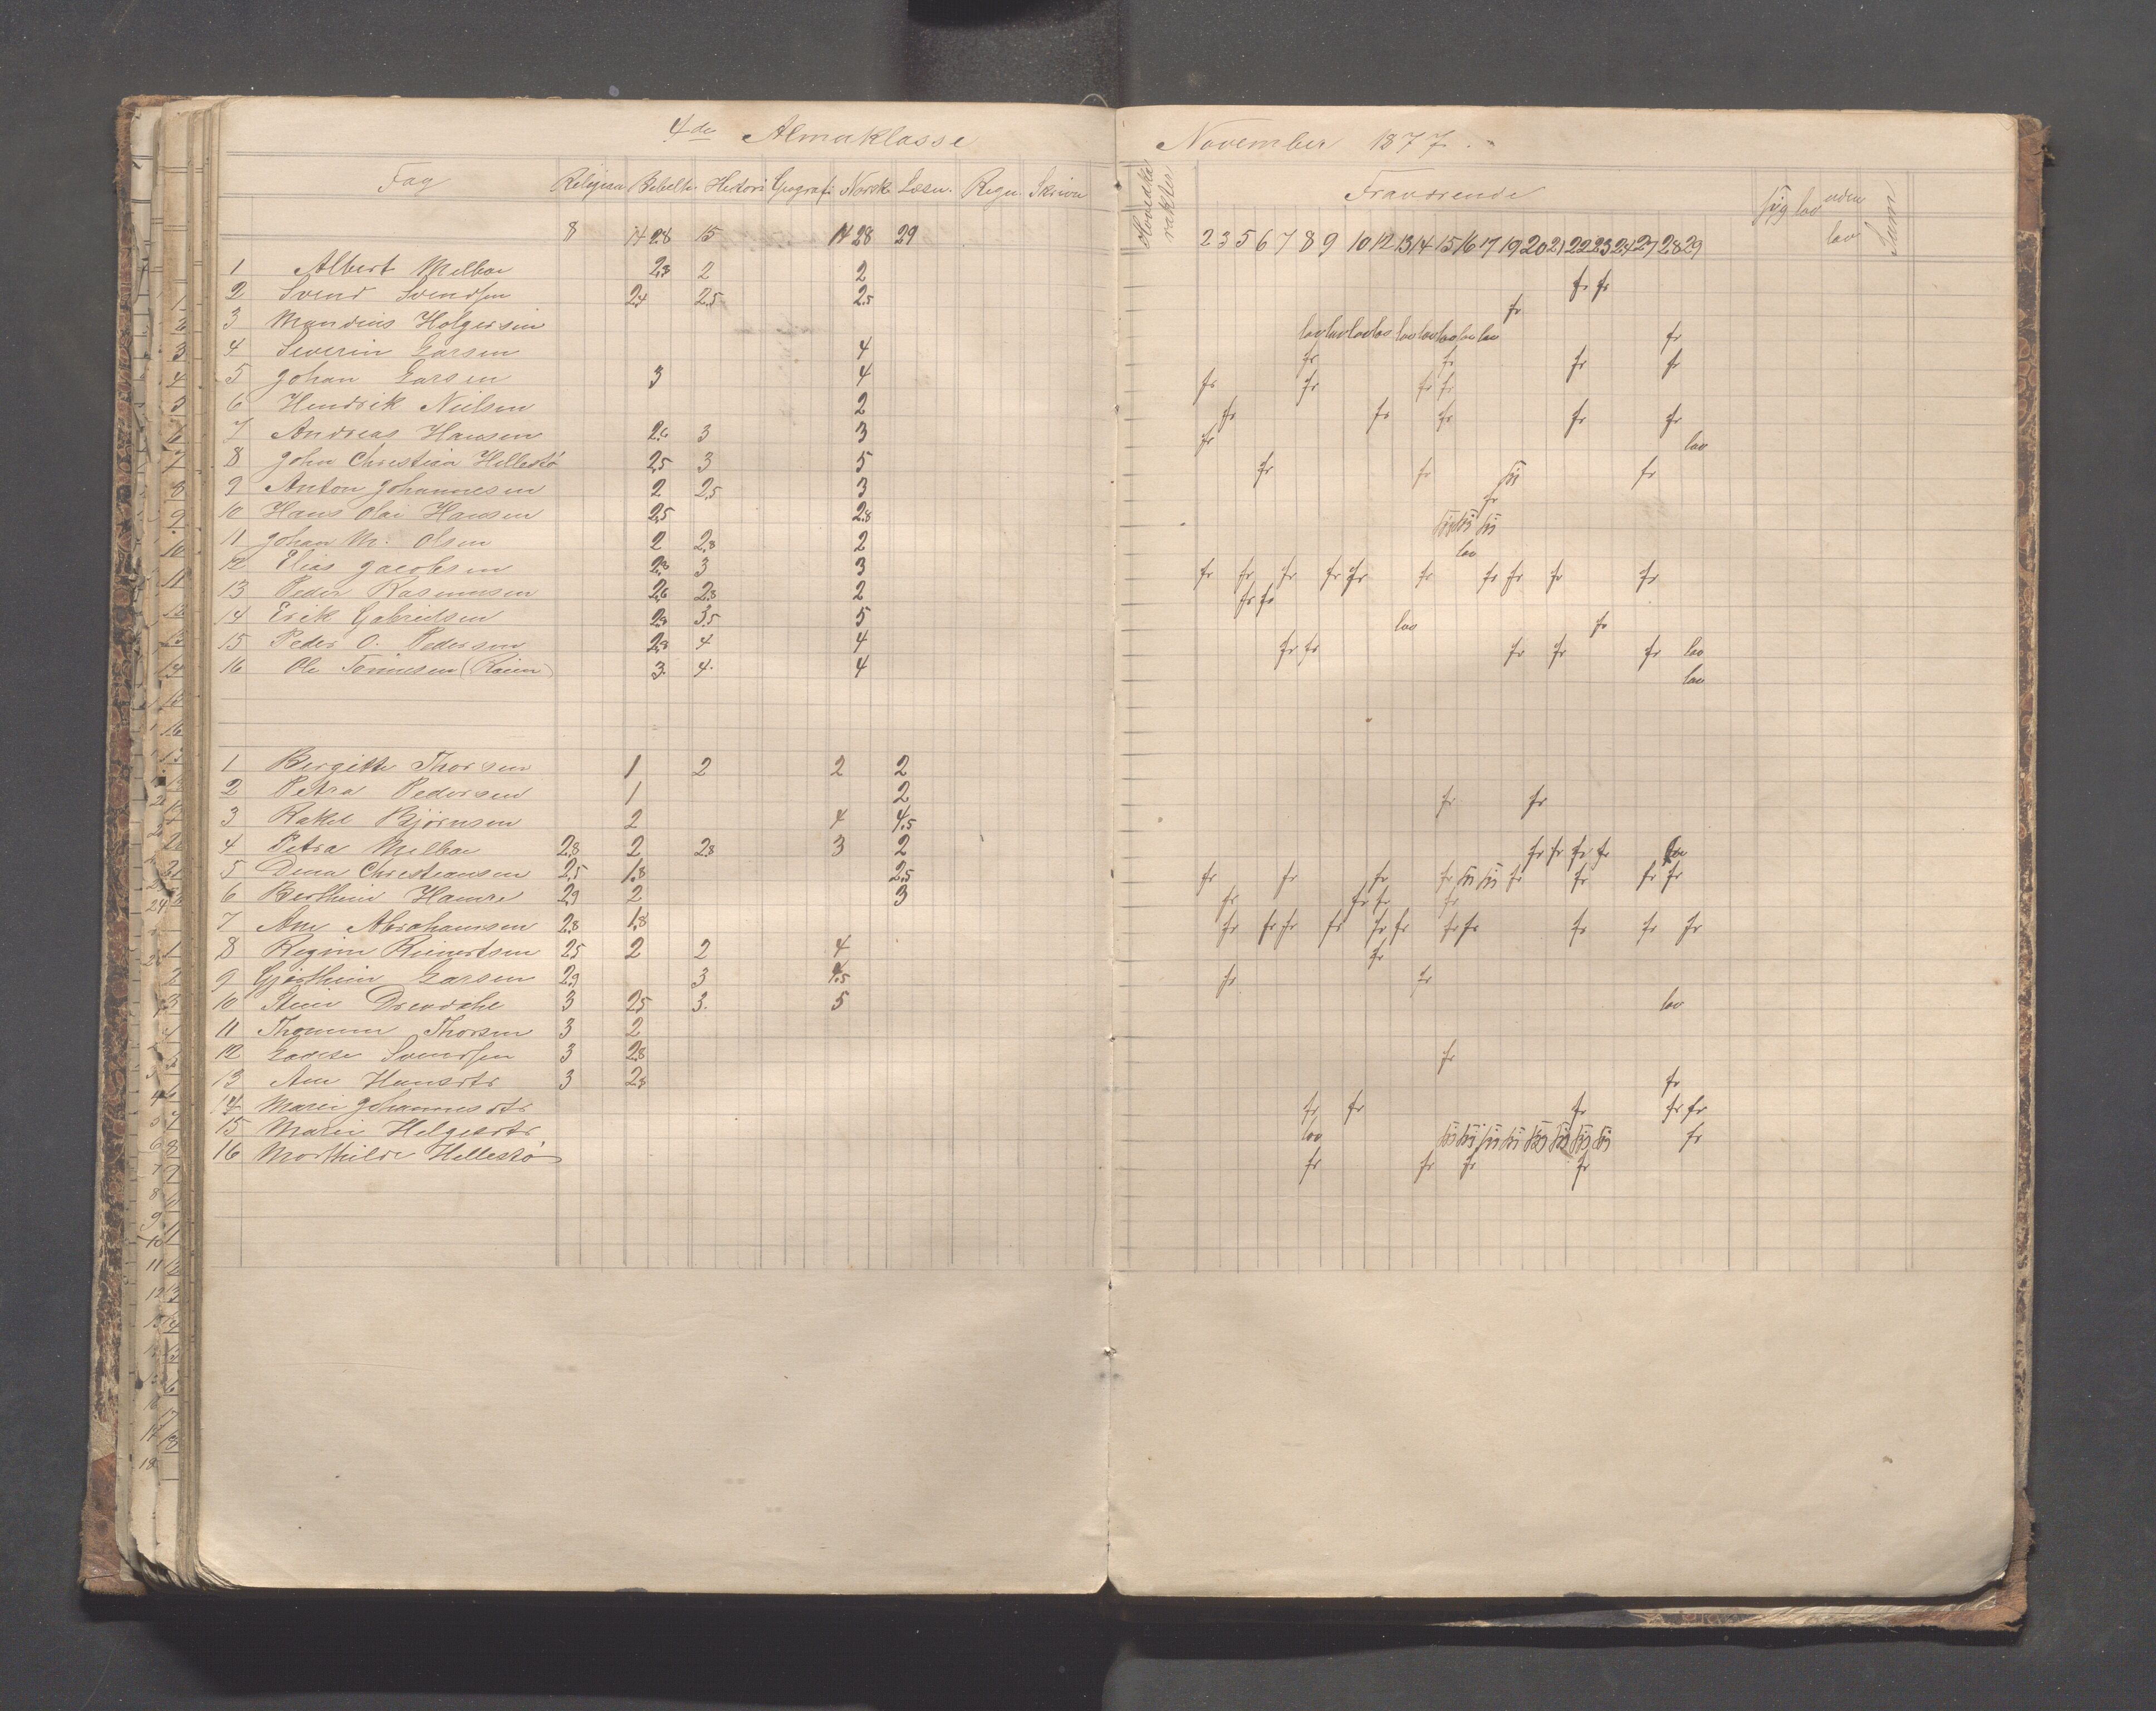 4de Almuklasse
November 1877.
Fag Religion Bibelh. Histori Geografi Norsk Læsn. Regn. Skrivn
Fraværende syg lov uden lov Sum
8 14 28 15 14 28 29
2 3 5 6 7 8 9 10 12 13 14 15 16 17 19 20 21 22 23 24 27 28 29
1 Albert Melboe 2,3 2 2
fr fr
2 Svend Svendsen 2,4 2,5 2,5
fr
3 Mandius Holgersen
lov lov lov lov lov lov lov lov lov fr
4 Severin Larsen 4
fr fr fr fr
5 Johan Larsen 3 4
fr fr fr fr
6 Hendrik Nielsen 2
fr fr fr fr fr
7 Andreas Hansen 2,6 3 3
fr lov
8 John Christian Hellestø 2,5 3 5
fr fr fr
9 Anton Johannesen 2 2,5 3
fr
10 Hans Olai Hansen 2,5 2,8
11 Johan M. Olsen 2 2,8 2
lov
12 Elias Jacobsen 2,8 3 3
fr fr fr fr fr fr fr fr fr fr
13 Peder Rasmussen 2,6 2,8 2
fr fr
14 Erik Gabrielsen 2,9 3,5 5
lov fr
15 Peder O. Pedersen 2,8 4 4
fr fr fr fr fr lov
16 Ole Tønnesen (Røien) 3 4 4
lov
1 Bergitte Thorsen 1 2 2 2
2 Petra Pedersen 1 2
fr fr
3 Rakel Bjørnsen 2 4 4,5
4 Petra Melboe 2,8 2 2,8 3 2
fr fr fr fr lov
5 Dina Christiansen 2,5 1,8 2,5
fr fr fr fr fr fr fr fr
6 Berthine Hamre 2,9 2 3
fr fr fr fr
7 Ane Abrahamsen 2,8 1,8
fr fr fr fr fr fr fr fr fr fr fr
8 Regine Reinertsen 2,5 2 2 4
fr
9 Gjerthine Larsen 2,9 3 4,5
fr fr
10 Stine 3 2,5 3. 5
lov
11 Thorsen 3 2
12 Lovise Svendsen 3 2,8
fr
13 Ane Hansdtr 3 2,8
fr
14 Marie Johannesdtr
fr fr fr fr fr
15 Marie Helgesdtr
lov fr
16 Marthilde Hellestø
fr fr fr fr